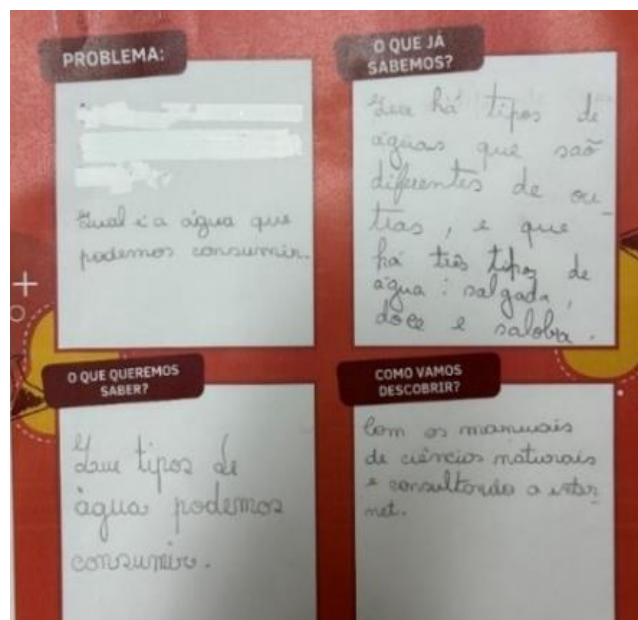 PROBLEMA:
Qual é a água que
podemos consumir.
O QUE JÁ
SABEMOS?
Que há tipos de
águas que saõ
diferentes de ou_
tras, e que
há três tipos de
água: salgada,
doce e salobra.
O QUE QUEREMOS
SABER?
Que tipos de
água podemos
consumir.
COMO VAMOS
DESCOBRIR?
Com os manuais
de ciências naturais
e consultando a inter_
net.